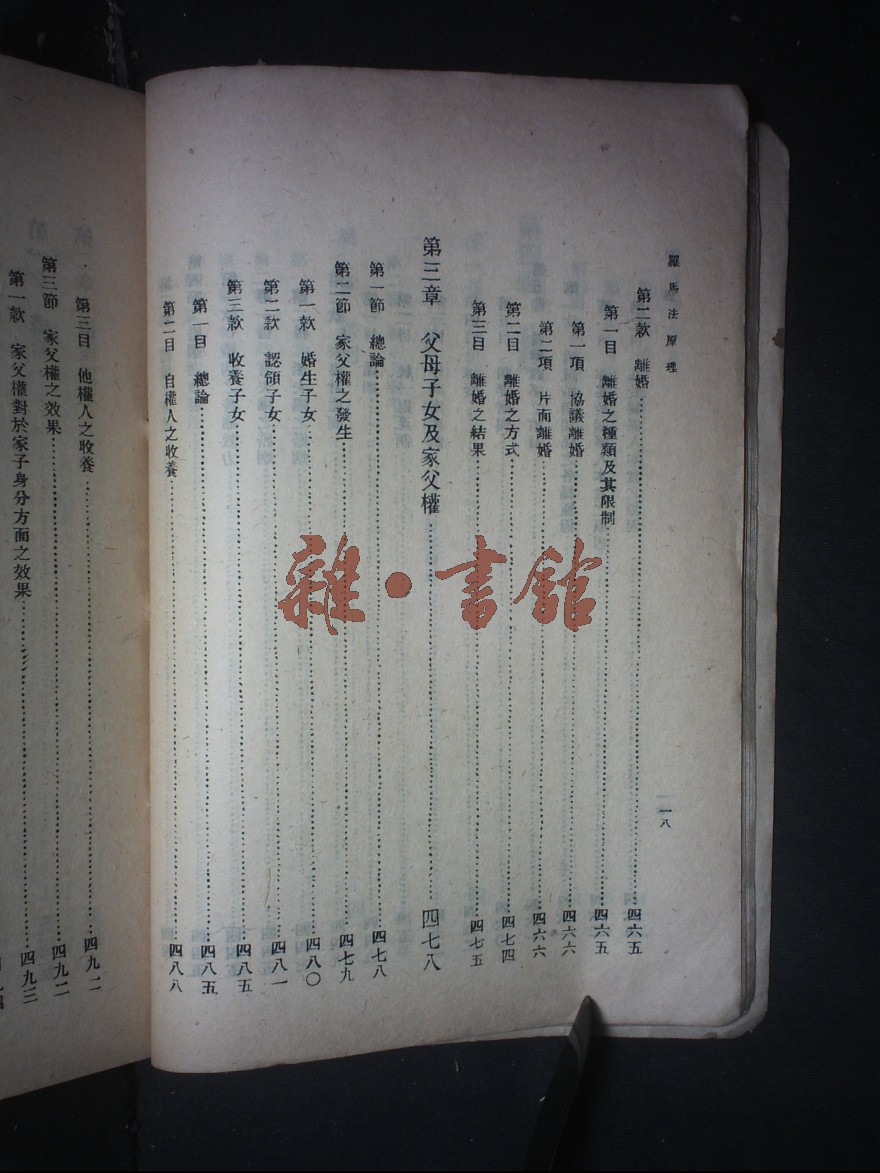 羅馬法原理
一八
第二款 離婚……四六五
第一目 離婚之種類及其限制……四六五
第一項 協議離婚……四六六
第二項 片面離婚……四六六
第二目 離婚之方式……四七四
第三目 離婚之結果……四七五
第三章 父母子女及家父權……四七八
第一節 總論……四七八
第二節 家父權之發生……四七九
第一款 婚生子女……四八〇
第二款 認領子女……四八一
第三款 收養子女……四八五
第一目 總論……四八五
第二目 自權人之收養……四八八
第三目 他權人之收養……四九一
第三節 家父權之效果……四九二
第一款 家父權對於家子身分方面之效果……四九三
雜·書館